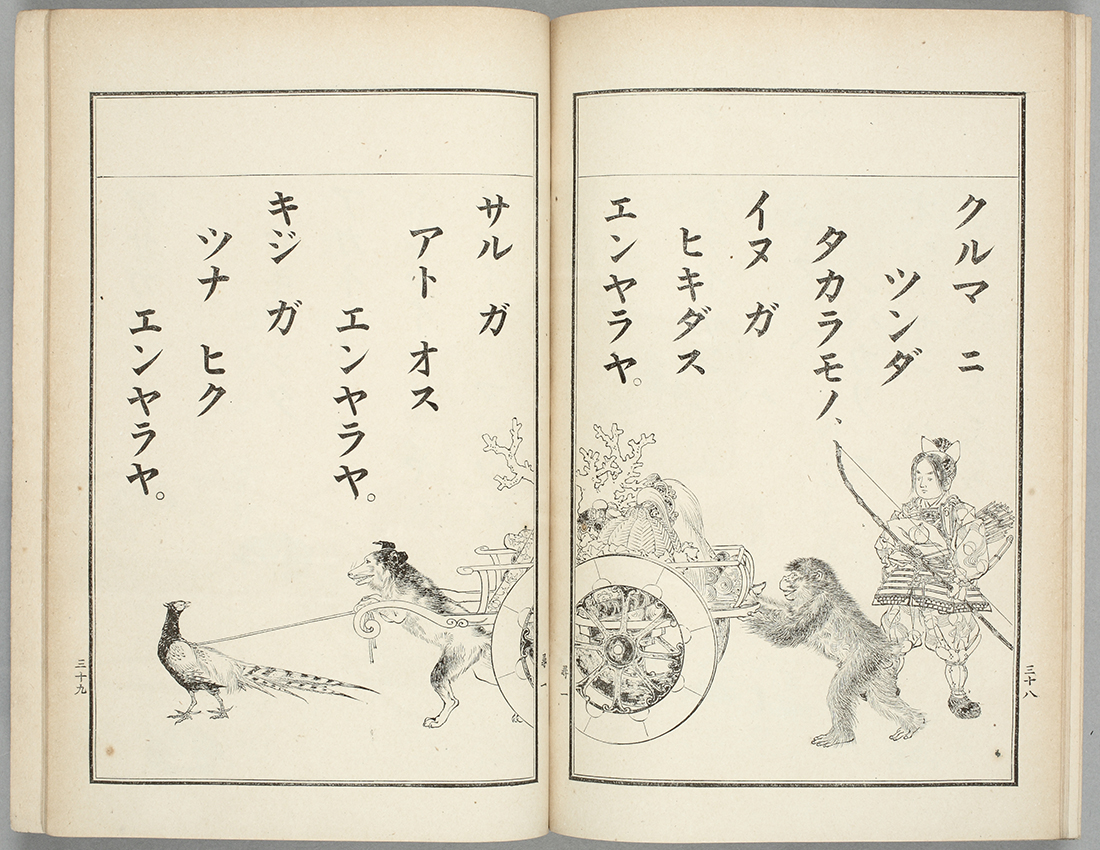 クルマ ニ
ツンダ
タカラモノ、
イヌ ガ
ヒキダス
エンヤラヤ。
三十八
サル ガ
アト オス
エンヤラヤ。
キジ ガ
ツナ ヒク
エンヤラヤ。
三十九